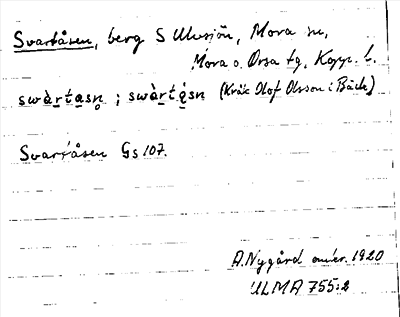 Svartåsen, berg S Ulvsjön, Mora sn,
Mora o. Orsa tg, Kopp. l.
swàr̠t̠a̠sn̥ ; swàr̠tə̠̀sn (Kräk Olof Olsson i Bäck)
Svartåsen Gs 107.
A. Nygård omkr. 1920
ULMA 755:2